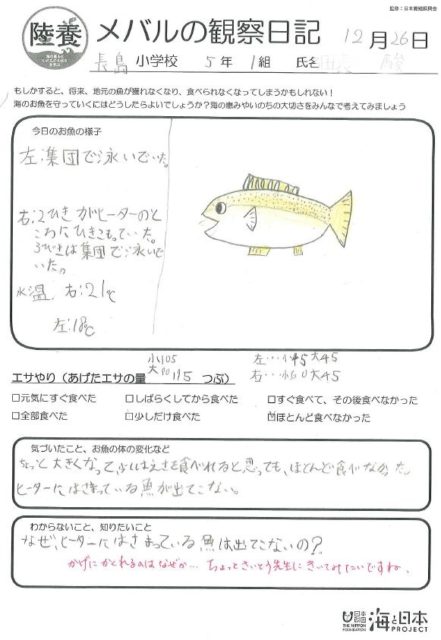 監修：日本養殖振興会
陸養
メバルの観察日記
12月26日
長島小学校 5年 1組 氏名
もしかすると、将来、地元の魚が獲れなくなり、食べられなくなってしまうかもしれない！
海のお魚を守っていくにはどうしたらよいでしょうか？海の恵みやいのちの大切さをみんなで考えてみましょう
今日のお魚の様子
左:集団で泳いでいた。
右:2ひきがヒーターのと
ころにひきこもっていた。
3びきは集団で泳いで
いた。
水温 右:21℃
左:18℃
小105
左…小45大45
右…小60大45
エサやり（あげたエサの量 つぶ）
□元気にすぐ食べた □しばらくしてから食べた □すぐ食べて、その後食べなかった
□全部食べた □少しだけ食べた ほとんど食べなかった
気づいたこと、お魚の体の変化など
ちょっと大きくなって、えさを食べれると思っても、ほとんど食べなかった。
ヒーターにはさまっている魚が出てこない。
わからないこと、知りたいこと
なぜ、ヒーターにはさまっている魚は出てこないの？
かげにかくれるのはなぜか… ちょっとさいとう先生にきいてみたいですね。
THE NIPPON FOUNDATION
海と日本
PROJECT